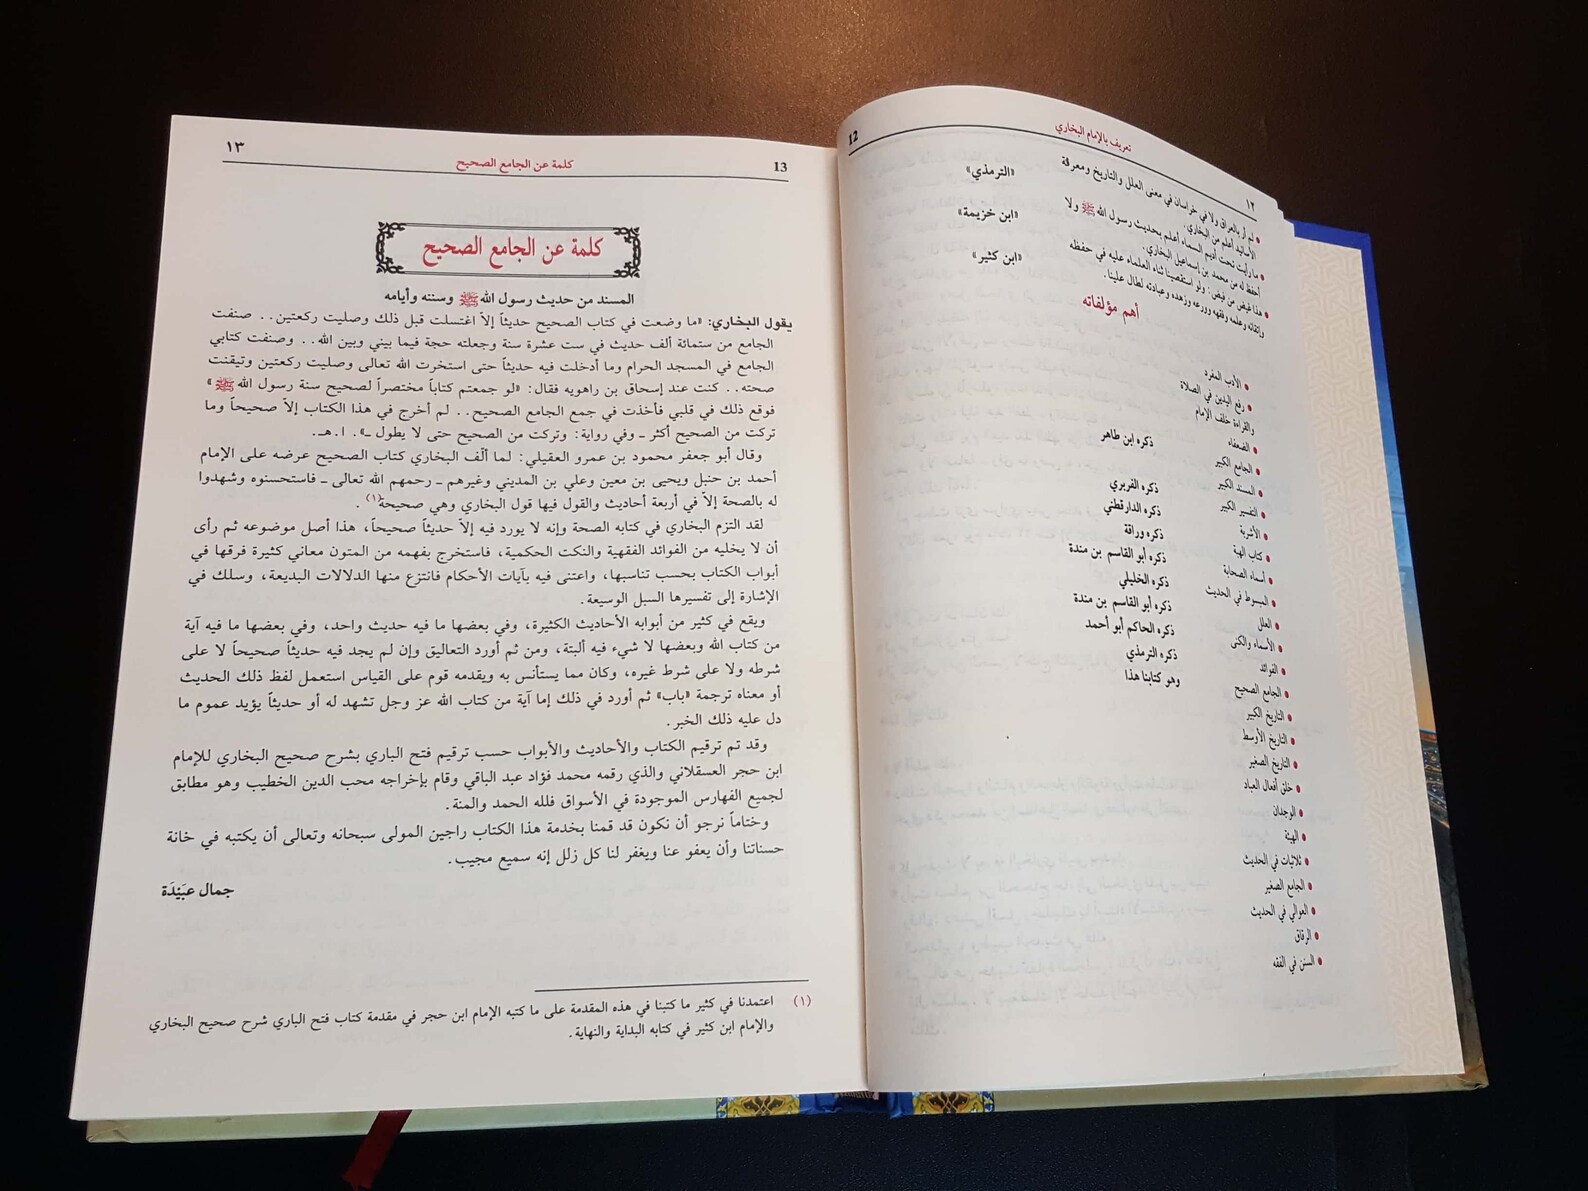 ١٢
تعريف بالإمام البخاري
12
لم أر بالعراق ولا في خراسان في معنى العلل والتاريخ ومعرفة
الأسانيد أعلم من البخاري.
«الترمذي»
ما رأيت تحت أديم السماء أعلم بحديث رسول الله ﷺ ولا
أحفظ له من محمد بن إسماعيل البخاري.
«ابن خزيمة»
هذا فيض من فيض: ولو استقصينا ثناء العلماء عليه في حفظه
وإتقانه وعلمه وفقهه وورعه وزهده وعبادته لطال علينا.
«ابن كثير»
أهم مؤلفاته
• الأدب المفرد
• رفع اليدين في الصلاة
والقراءة خلف الإمام
• الضعفاء
• الجامع الكبير ذكره ابن طاهر
• المسند الكبير
• التفسير الكبير ذكره الفربري
• الأشربة ذكره الدارقطني
• كتاب الهبة ذكره وراقة
• أسماء الصحابة ذكره أبو القاسم بن مندة
• المبسوط في الحديث ذكره الخليلي
• العلل ذكره أبو القاسم بن مندة
• الأسماء والكنى ذكره الحاكم أبو أحمد
• الفوائد ذكره الترمذي
• الجامع الصحيح وهو كتابنا هذا
• التاريخ الكبير
• التاريخ الأوسط
• التاريخ الصغير
• خلق أفعال العباد
• الوجدان
• الهيئة
• ثلاثيات في الحديث
• الجامع الصغير
• العوالي في الحديث
• الرقاق
• السنن في الفقه
13
كلمة عن الجامع الصحيح
١٣
كلمة عن الجامع الصحيح
المسند من حديث رسول الله ﷺ وسننه وأيامه
يقول البخاري: «ما وضعت في كتاب الصحيح حديثاً إلاّ اغتسلت قبل ذلك وصليت ركعتين.. صنفت
الجامع من ستمائة ألف حديث في ست عشرة سنة وجعلته حجة فيما بيني وبين الله.. وصنفت كتابي
الجامع في المسجد الحرام وما أدخلت فيه حديثاً حتى استخرت الله تعالى وصليت ركعتين وتيقنت
صحته.. كنت عند إسحاق بن راهويه فقال: «لو جمعتم كتاباً مختصراً لصحيح سنة رسول الله ﷺ»
فوقع ذلك في قلبي فأخذت في جمع الجامع الصحيح.. لم أخرج في هذا الكتاب إلاّ صحيحاً وما
تركت من الصحيح أكثر ـ وفي رواية: وتركت من الصحيح حتى لا يطول ـ». ا.هـ.
وقال أبو جعفر محمود بن عمرو العقيلي: لما ألف البخاري كتاب الصحيح عرضه على الإمام
أحمد بن حنبل ويحيى بن معين وعلي بن المديني وغيرهم ـ رحمهم الله تعالى ـ فاستحسنوه وشهدوا
له بالصحة إلاّ في أربعة أحاديث والقول فيها قول البخاري وهي صحيحة(١).
لقد التزم البخاري في كتابه الصحة وإنه لا يورد فيه إلاّ حديثاً صحيحاً، هذا أصل موضوعه ثم رأى
أن لا يخليه من الفوائد الفقهية والنكت الحكمية، فاستخرج بفهمه من المتون معاني كثيرة فرقها في
أبواب الكتاب بحسب تناسبها، واعتنى فيه بآيات الأحكام فانتزع منها الدلالات البديعة، وسلك في
الإشارة إلى تفسيرها السبل الوسيعة.
ويقع في كثير من أبوابه الأحاديث الكثيرة، وفي بعضها ما فيه حديث واحد، وفي بعضها ما فيه آية
من كتاب الله وبعضها لا شيء فيه ألبتة، ومن ثم أورد التعاليق وإن لم يجد فيه حديثاً صحيحاً لا على
شرطه ولا على شرط غيره، وكان مما يستأنس به ويقدمه قوم على القياس استعمل لفظ ذلك الحديث
أو معناه ترجمة «باب» ثم أورد في ذلك إما آية من كتاب الله عز وجل تشهد له أو حديثاً يؤيد عموم ما
دل عليه ذلك الخبر.
وقد تم ترقيم الكتاب والأحاديث والأبواب حسب ترقيم فتح الباري بشرح صحيح البخاري للإمام
ابن حجر العسقلاني والذي رقمه محمد فؤاد عبد الباقي وقام بإخراجه محب الدين الخطيب وهو مطابق
لجميع الفهارس الموجودة في الأسواق فلله الحمد والمنة.
وختاماً نرجو أن نكون قد قمنا بخدمة هذا الكتاب راجين المولى سبحانه وتعالى أن يكتبه في خانة
حسناتنا وأن يعفو عنا ويغفر لنا كل زلل إنه سميع مجيب.
جمال عبَيْدَة
(١) اعتمدنا في كثير ما كتبنا في هذه المقدمة على ما كتبه الإمام ابن حجر في مقدمة كتاب فتح الباري شرح صحيح البخاري
والإمام ابن كثير في كتابه البداية والنهاية.